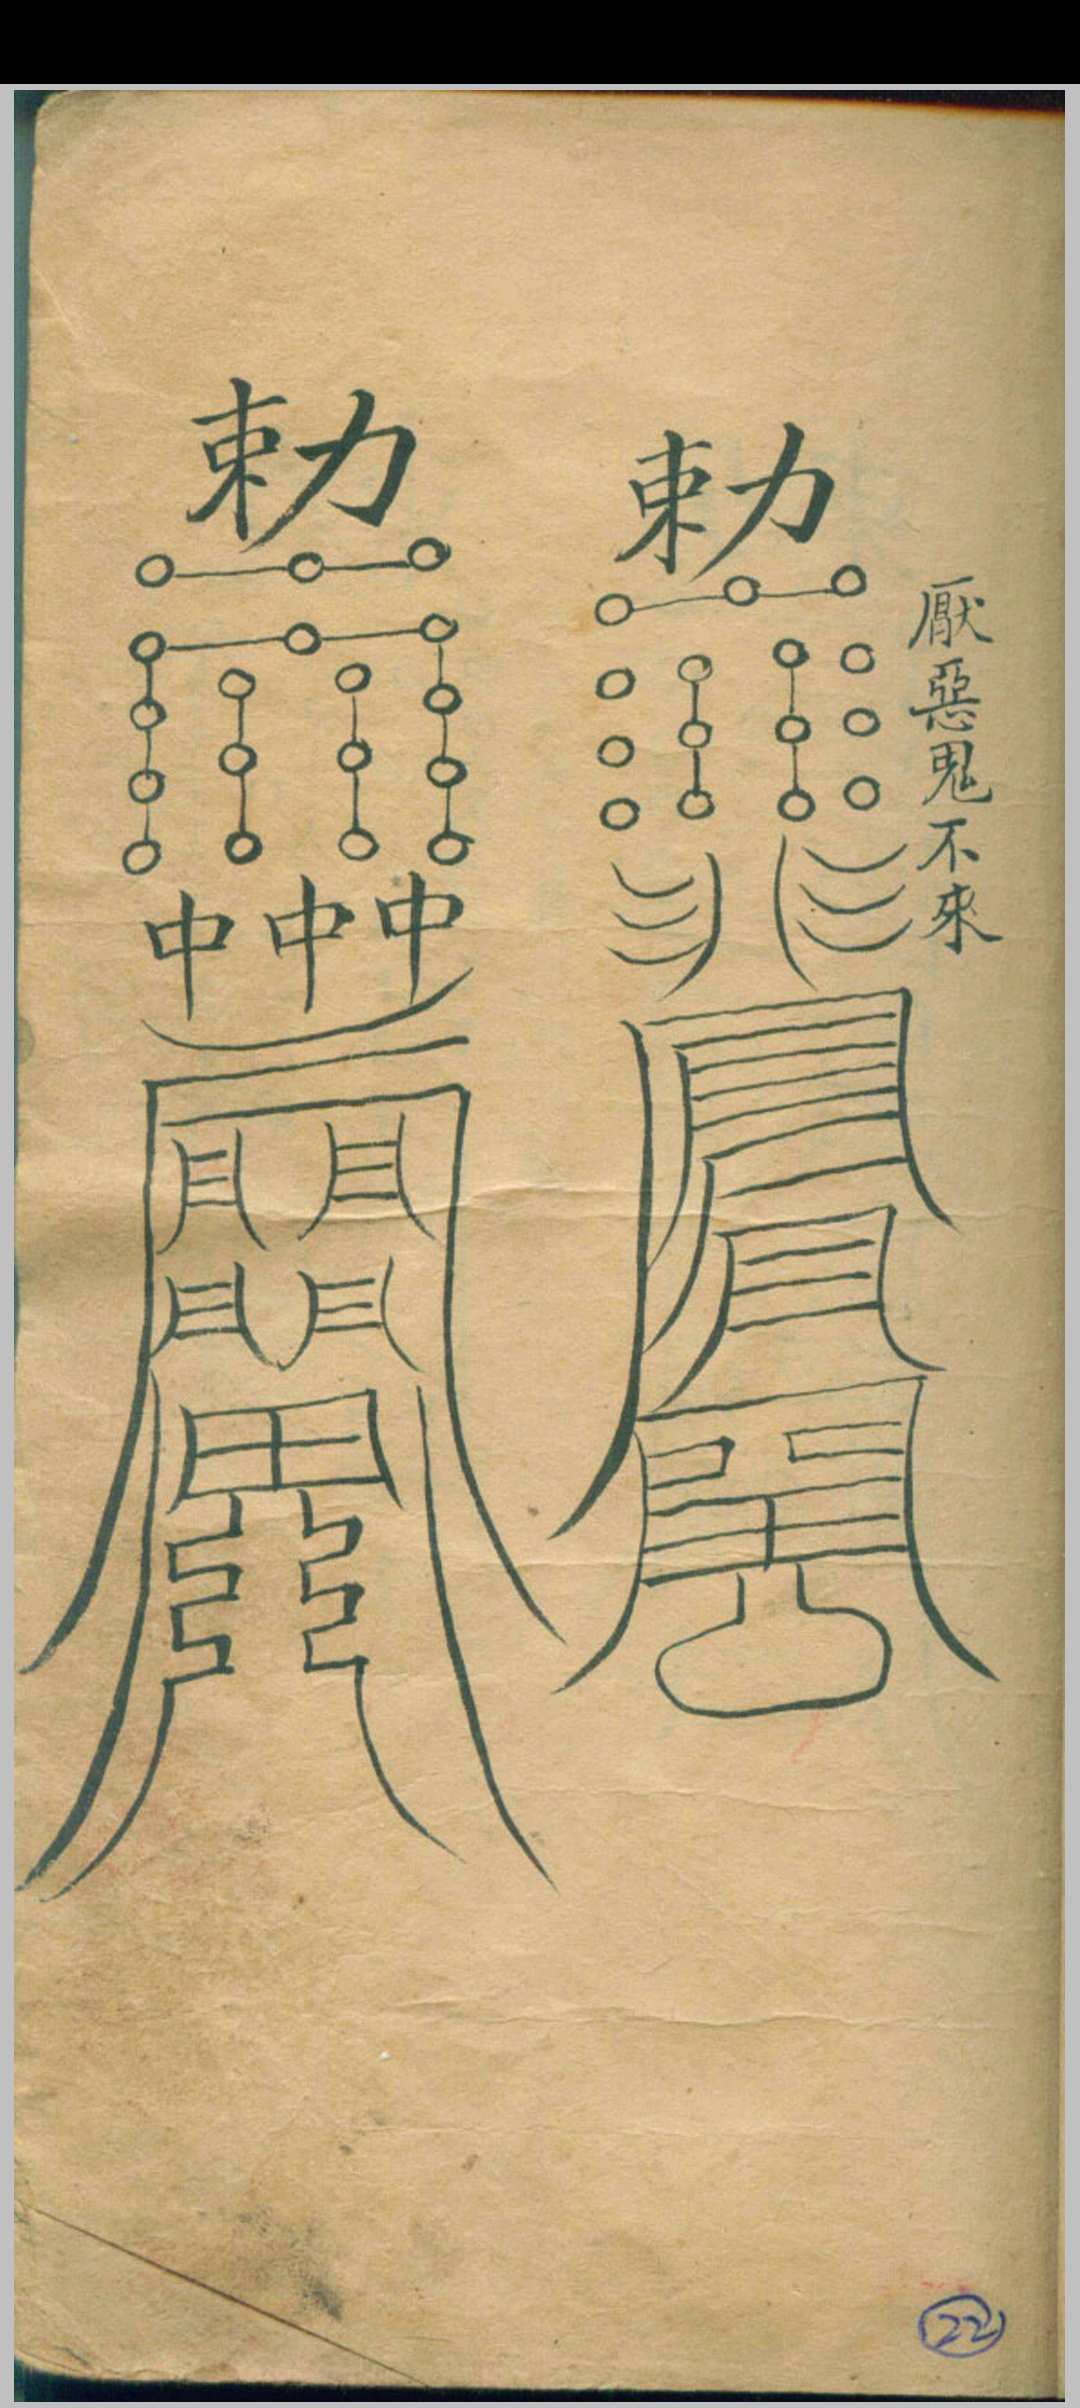 厭惡鬼不來
勅
勅
中中中
22